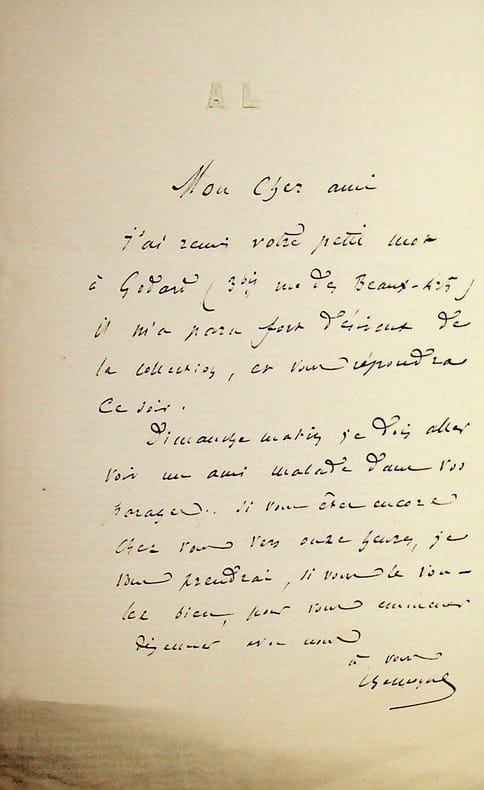 AL
Mon cher ami
J'ai remis votre petit mot
à Godard (3bis rue des Beaux-Arts)
il m'a paru fort désireux de
la collection, et vous répondra
ce soir.
Dimanche matin je dois aller
voir un ami malade dans vos
parages.. si vous êtes encore
chez vous vers onze heures, je
vous prendrai, si vous le vou-
lez bien, pour vous emmener
déjeuner avec nous
à vous